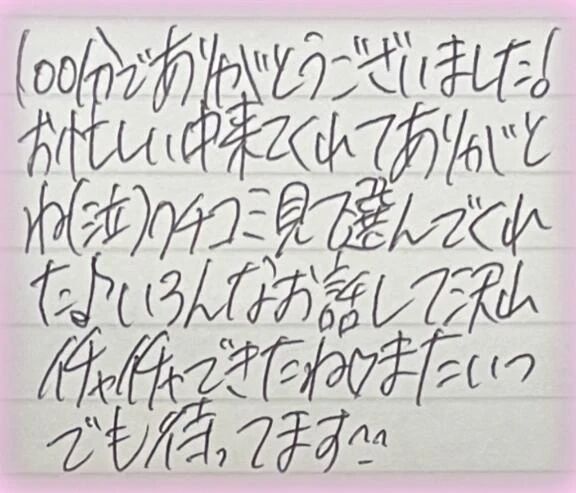 100分でありがとうございました!
お忙しい中来てくれてありがと
ね(泣)クチコミ見て選んでくれ
た♪いろんなお話して沢山
イチャイチャできたね♡またいつ
でも待ってます^^